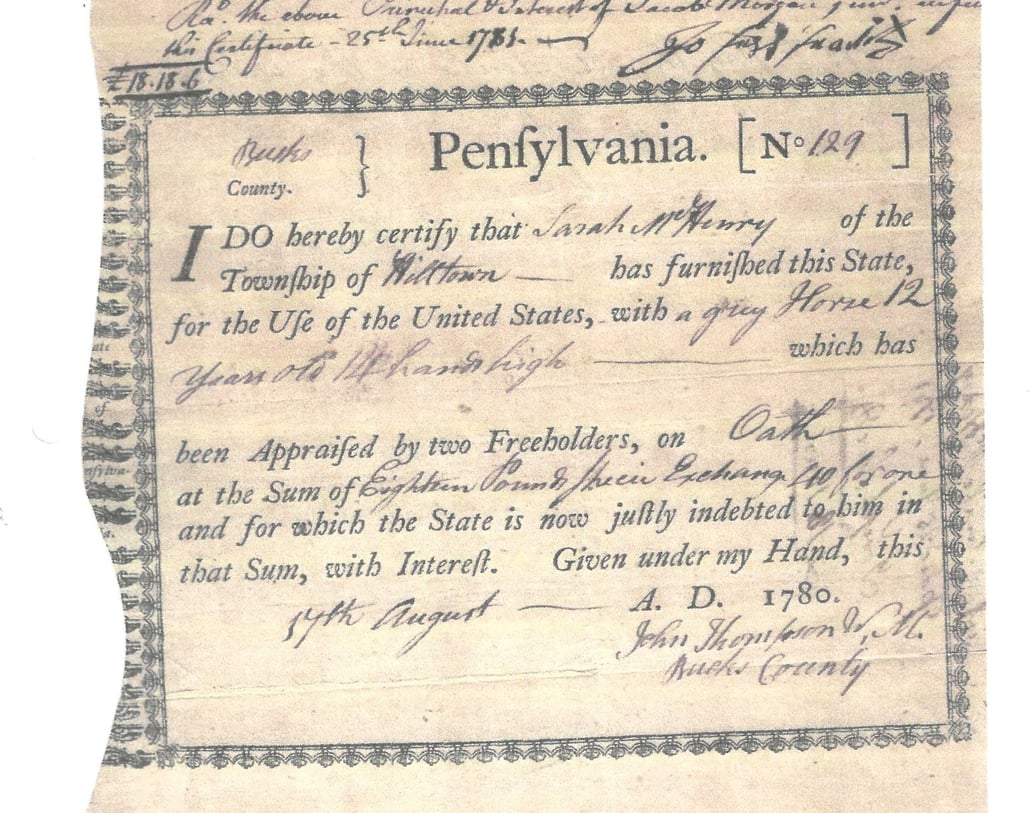 Recd. the above Principal & Interest of Jacob Morgan Junr.
this Certificate - 25th June 1781.
£18.18.6
Bucks
County. }
Penſylvania. [No 129 ]
I DO hereby certify that Sarah McHenry of the
Townſhip of Hilltown — has furniſhed this State,
for the Uſe of the United States, with a grey Horse 12
Years old hands high — which has
been Appraiſed by two Freeholders, on Oath —
at the Sum of Eighteen Pounds specie Exchange 40 for one
and for which the State is now juſtly indebted to him in
that Sum, with Intereſt. Given under my Hand, this
17th August — A. D. 1780.
John Thompson W, M.
Bucks County
ate
of
nſylva-